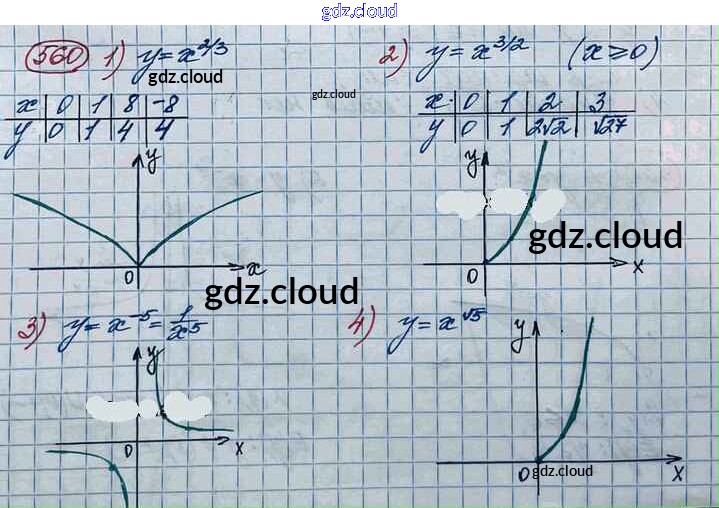 gdz.cloud
560 1) y = x^{2/3}
gdz.cloud
x | 0 | 1 | 8 | -8
y | 0 | 1 | 4 | 4
y
0 x
gdz.cloud
2) y = x^{3/2} (x ⩾ 0)
gdz.cloud
x | 0 | 1 | 2 | 3
y | 0 | 1 | 2√2 | √27
y
gdz.cloud
0 x
3) y = x^{-5} = 1/x^5
y
0 x
4) y = x^{√5}
y
0 gdz.cloud x